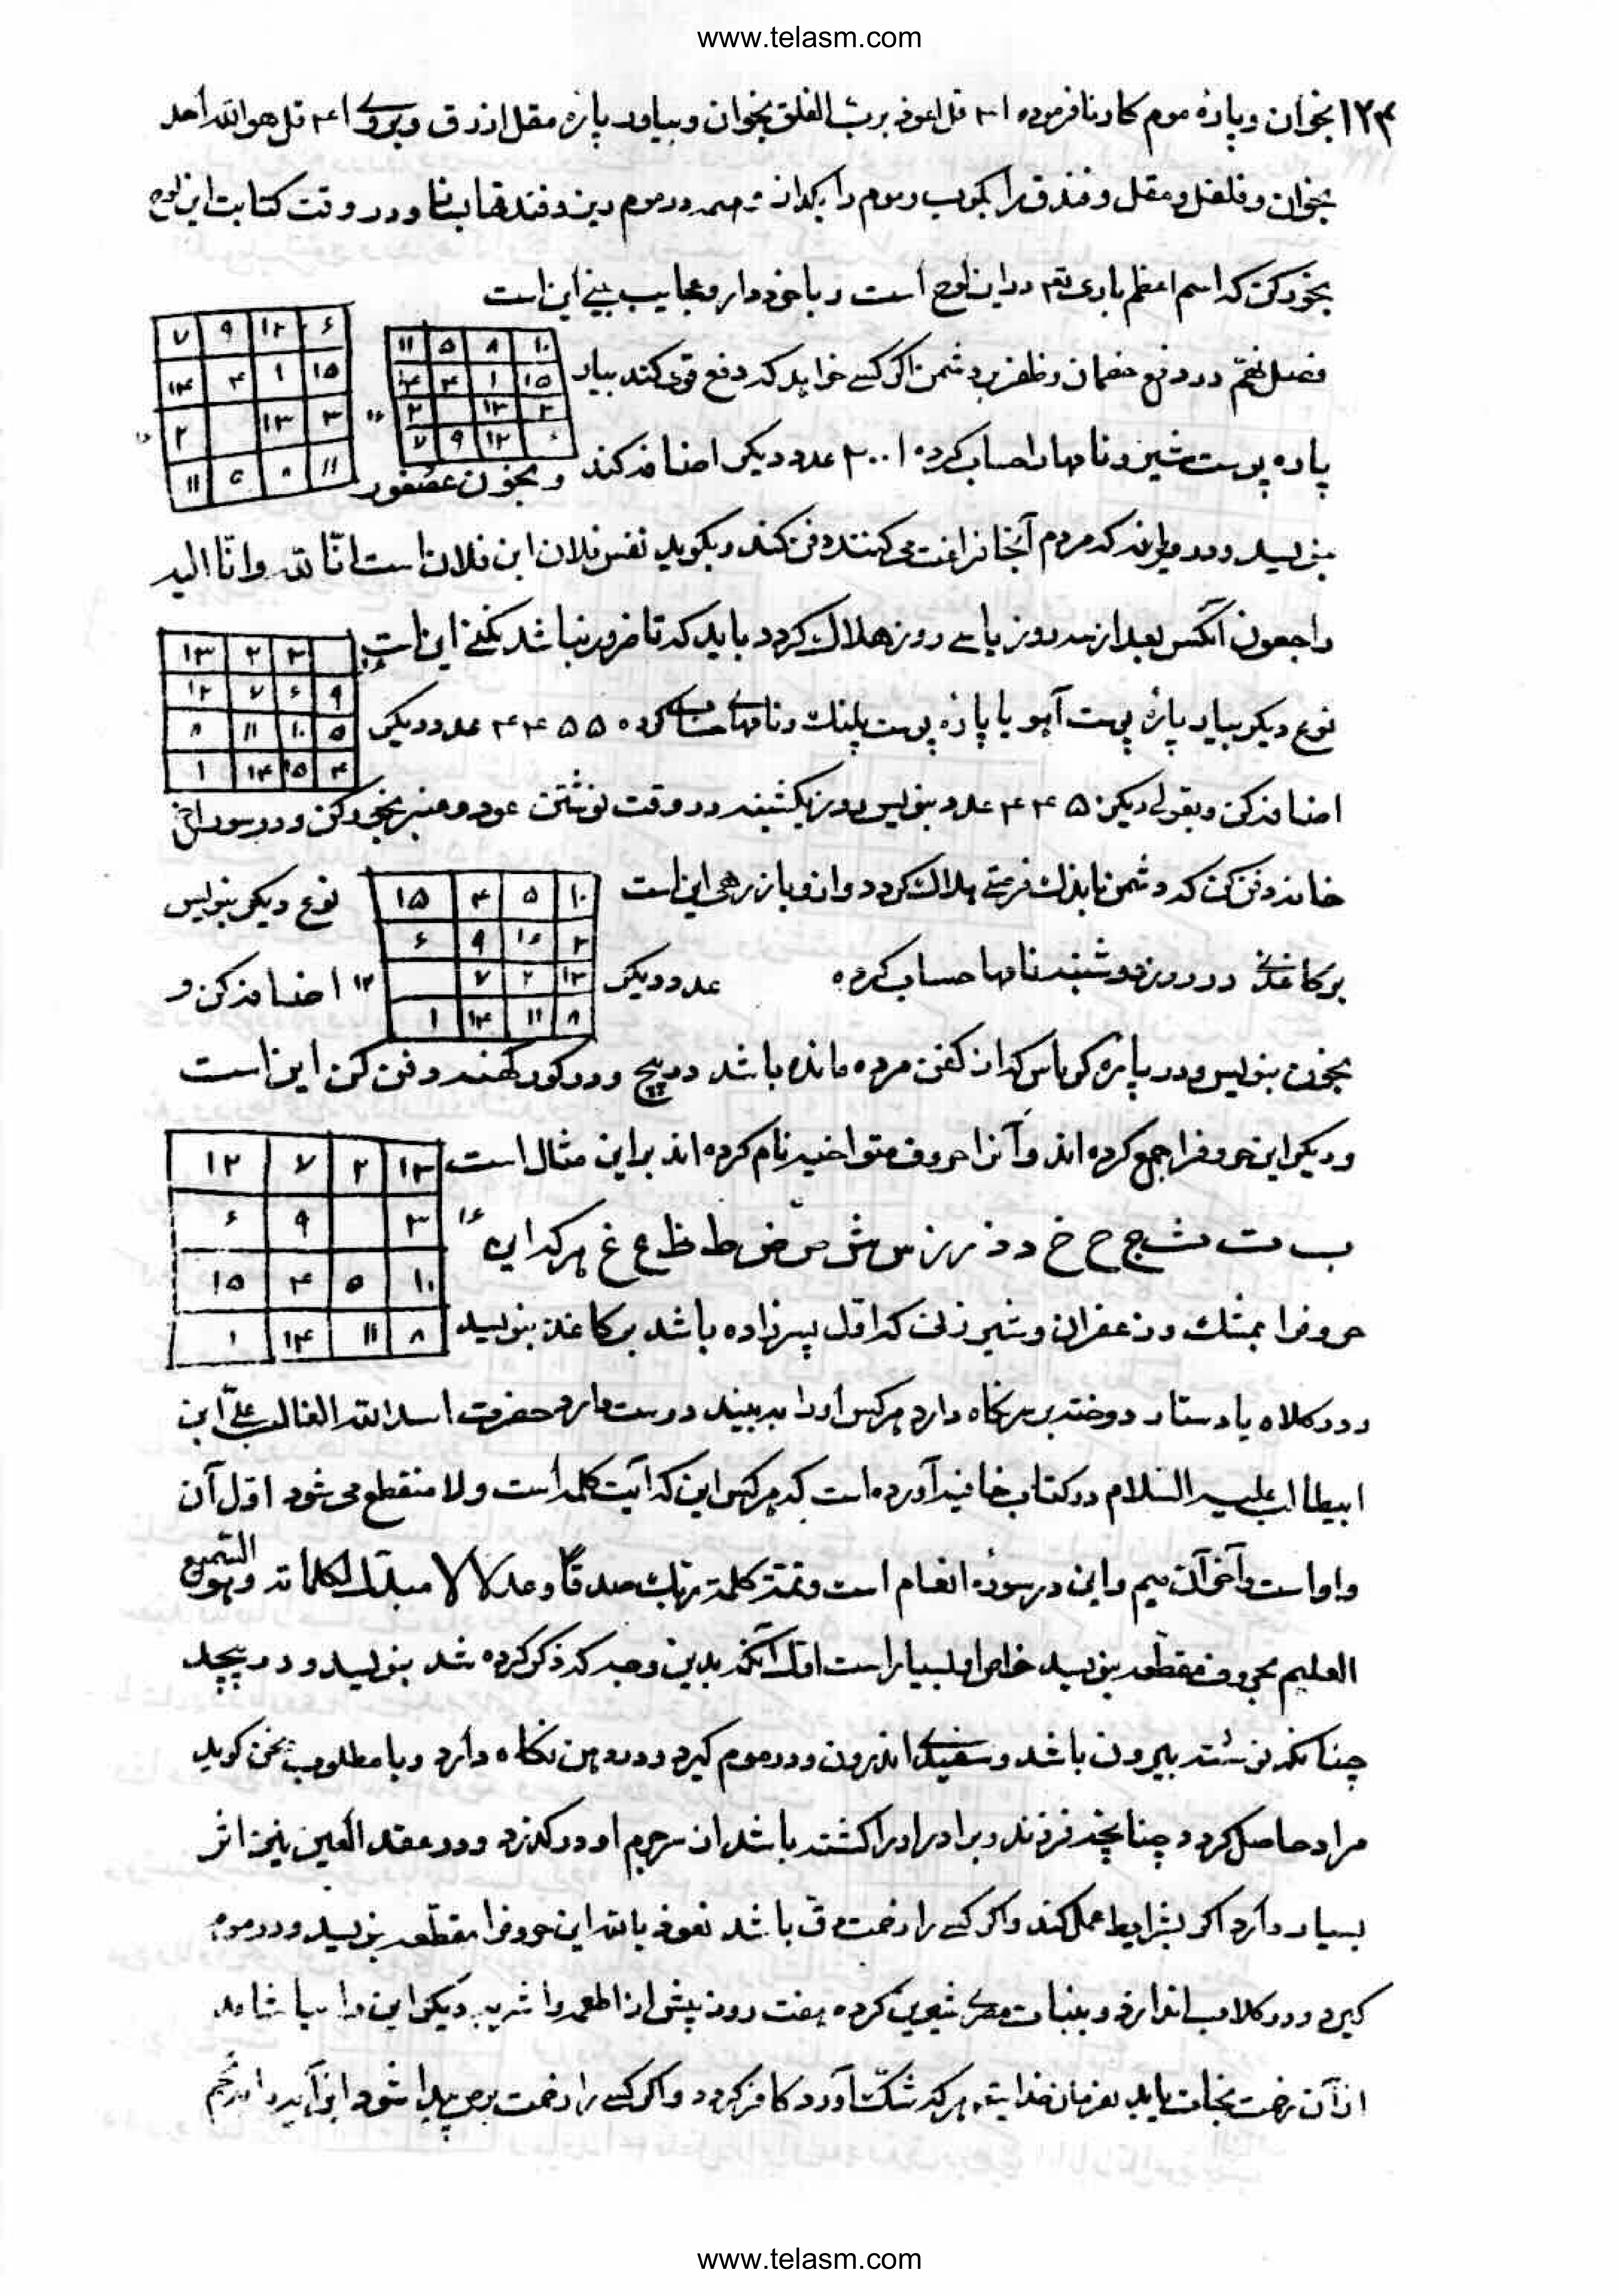 www.telasm.com
۱۲۴ بخوان و پارهٔ موم کار نافرموده ۴۱ قل اعوذ برب الفلق بخوان و بیاور پاره مقل ازرق و بروی ۴۱ قل هو الله احد
بخوان و فلفل و مقل و فندق را بکوب و موم را بکداز در موم ریز و در وقت کتابت این لوح
بخور کن که اسم اعظم باری تع در این لوح است و با خود دار و عجایب بینی این است
۷ ۹ ۱۲ ۶
۱۴ ۴ ۱ ۱۵
۲ ۱۳ ۳
۱۱ ۵ ۸ ۱۱
۱۶
۱۱ ۵ ۸ ۱۰
۱۴ ۴ ۱ ۱۵
۲ ۱۳ ۳
۷ ۹ ۱۲ ۶
۱۶
فصل در دفع خصمان و ظفر بر دشمن اکر کسی خواهد که دفع قوی کند بیارد
پاره پوست شیر و نامها را حساب کرده ۳۰۰۱ عدد دیکر اضافه کند و بخون عصفور
بنویسد و در که مردم آنجا می کنند دفن کند و بکوید نفس فلان ابن فلان است انا لله و انا الیه
راجعون آنکس بعد از سه روز یا سی روز هلاک کردد باید که تا ضرور نباشد نکنی این است
۱۳ ۲ ۳
۱۲ ۷ ۶ ۹
۸ ۱۱ ۱۰ ۵
۱ ۱۴ ۱۵ ۴
نوع دیکر بیار پارهٔ پوست آهو یا پاره پوست پلنک و نامهای کرده ۵۵ ۴۴ عدد دیکر
اضافه کن و بقولی دیکر ۴۴۵ عدد بنویس روز یکشنبه در وقت نوشتن عود و عنبر بخور کن و در سوراخ
خانه دفن کن که دشمن باندک فرصتی هلاک کردد این است
۱۵ ۴ ۵ ۱۰
۶ ۹ ۱۶ ۳
۷ ۲ ۱۳
۱ ۱۴ ۱۱ ۸
نوع دیکر بنویس
بر کاغذی در روز دوشنبه نامها حساب کرده عدد دیکر ۱۲ اضافه کن و
بخون بنویس و در پاره کرباس که از کفن مرده مانده باشد در پیچ و در کور کهنه دفن کن این است
۱۲ ۷ ۲ ۱۳
۶ ۹ ۳
۱۵ ۴ ۵ ۱۰
۱ ۱۴ ۱۱ ۸
۱۶
و دیکر این حروفرا جمع کرده اند و آنرا حروف متواخیه نام کرده اند بر این مثال است
ب ت ث ج ح خ د ذ ر ز س ش ص ض ط ظ ع غ هر که این
حروفرا بمشک و زعفران و شیر زنی که اول پسر زاده باشد بر کاغذ بنویسد
و در کلاه یا دستار دوخته بر سر نکاه دارد هر کس او را به بیند دوست دارد حضرت اسد الله الغالب علی ابن
ابیطالب علیه السلام در کتاب خافیه آورده است که هر کس این که آیت کلمه است و لا منقطع می شود اول آن
واو است و آخر آن میم و این در سورهٔ انعام است و تمت کلمة ربک صدقا و عدلا لا مبدل لکلماته و هو السمیع
العلیم بحروف مقطعه بنویسد خواص او بسیار است اول آنکه بدین وجه که ذکر کرده شد بنویسد و در پیچد
چنانکه نوشته بیرون باشد و سفیدی اندرون و در موم کیرد و در دهن نکاه دارد و با مطلوب سخن کوید
مراد حاصل کردد و چنانچه فرزند و برادر او را کشته باشد از سر جرم او در کذرد و در عقد العین نیز اثر
بسیار دارد اکر بشرایط عمل کند و اکر کسی را زحمت دق باشد نعوذ بالله این حروفرا مقطعه بنویسد و در موم
کیرد و در کلاب اندازد و بنبات مصری شیرین کرده هفت روز پیش از اطعمه و اشربه دیکر این را بیاشامد
از آن زحمت نجات یابد بفرمان خدای هر که شک آورد کافر کردد و اکر کسی را زحمت برص پیدا شود این آیه را
www.telasm.com